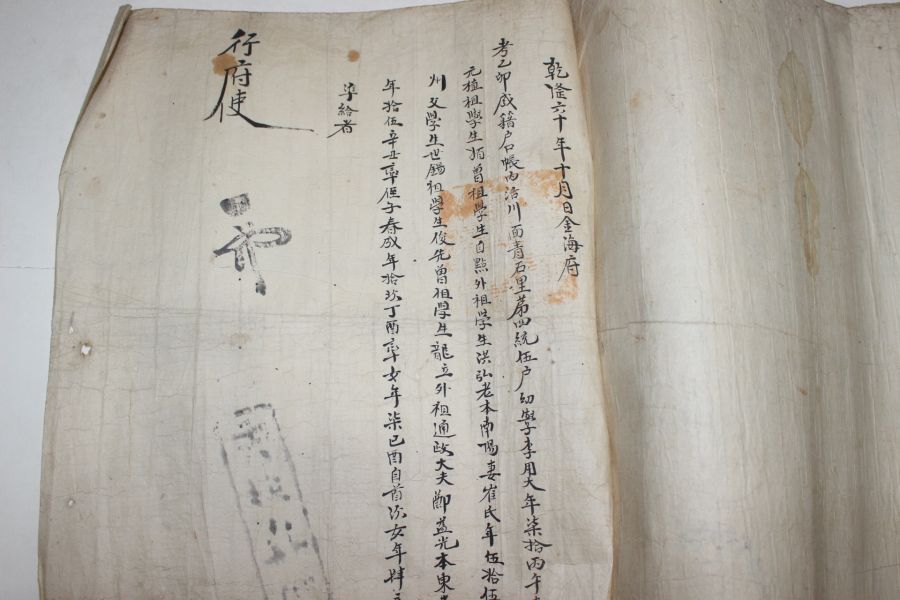 乾隆六十年十月日金海府
考乙卯成籍戶口帳內活川面青石里第四統伍戶幼學李用大年柒拾丙午
元植祖學生 曾祖學生自點外祖學生洪弘老本南陽妻崔氏年伍拾伍
州父學生世錫祖學生俊先曾祖學生龍立外祖通政大夫鄭益光本東
年拾伍辛丑率侄子春成年拾玖丁酉率女年柒己酉自首次女年
準給者
行府使